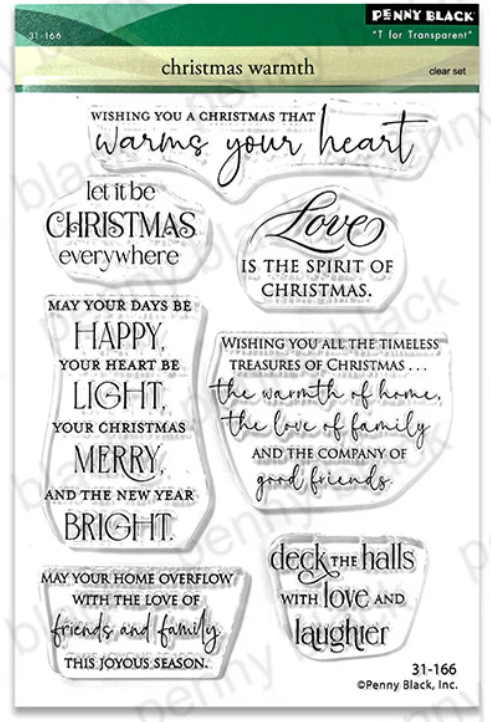 PENNY BLACK
31-166
"T for Transparent"
christmas warmth
clear set
WISHING YOU A CHRISTMAS THAT
warms your heart
let it be
CHRISTMAS
everywhere
Love
IS THE SPIRIT OF
CHRISTMAS.
MAY YOUR DAYS BE
HAPPY,
YOUR HEART BE
LIGHT,
YOUR CHRISTMAS
MERRY,
AND THE NEW YEAR
BRIGHT.
WISHING YOU ALL THE TIMELESS
TREASURES OF CHRISTMAS . . .
the warmth of home,
the love of family
AND THE COMPANY OF
good friends.
MAY YOUR HOME OVERFLOW
WITH THE LOVE OF
friends and family
THIS JOYOUS SEASON.
deck THE halls
WITH love AND
laughter
31-166
©Penny Black, Inc.
penny black